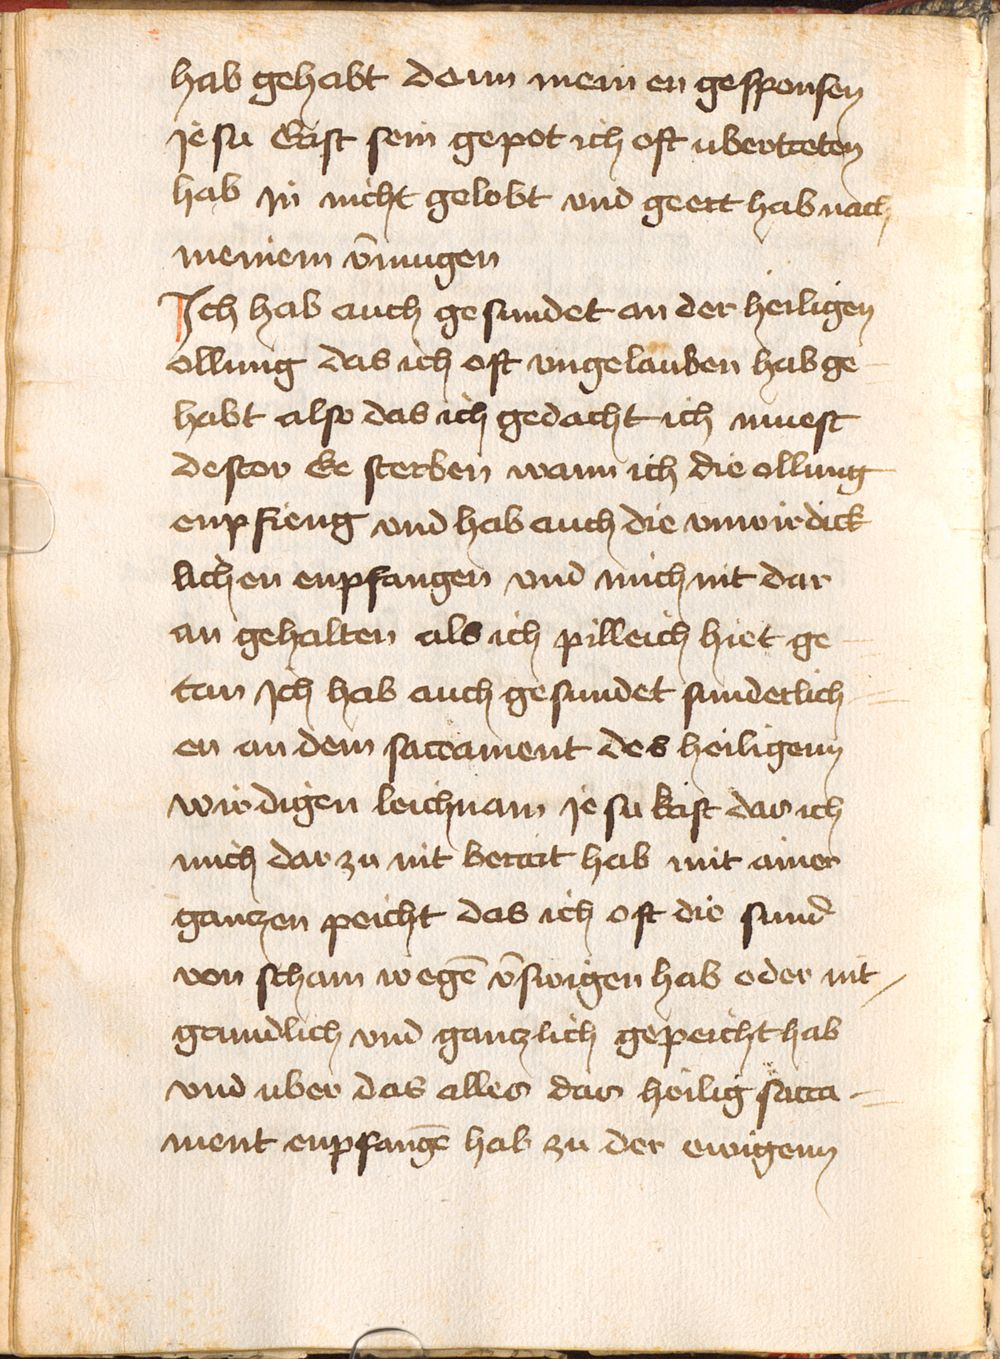 hab gehabt denn mein en gesponsen
Jesu Crist sein gepot ich oft ubertreten
hab In nicht gelobt und geert hab nach
meinem v̄mugen
Ich hab auch gesundet an der heiligen
ollung das ich oft ungelauben hab ge=
habt also das ich gedacht ich muest
dester Ee sterben wann ich die ollung
enpfieng und hab auch die unwirdick
lichen enpfangen und mich nit dar
an gehalten als ich pilleich hiet ge=
tan Ich hab auch gesundet sunderlich=
en an dem sacrament des heiligenn
wirdigen leichnam Jesu krist das ich
mich dar zu nit berait hab mit ainer
gantzen peicht das ich oft die sund
von scham wegē v̄swigen hab oder nit
grundlich und gantzlich gepeicht hab
und uber das alles das heilig sacra=
ment enpfangē hab zu der ewigenn